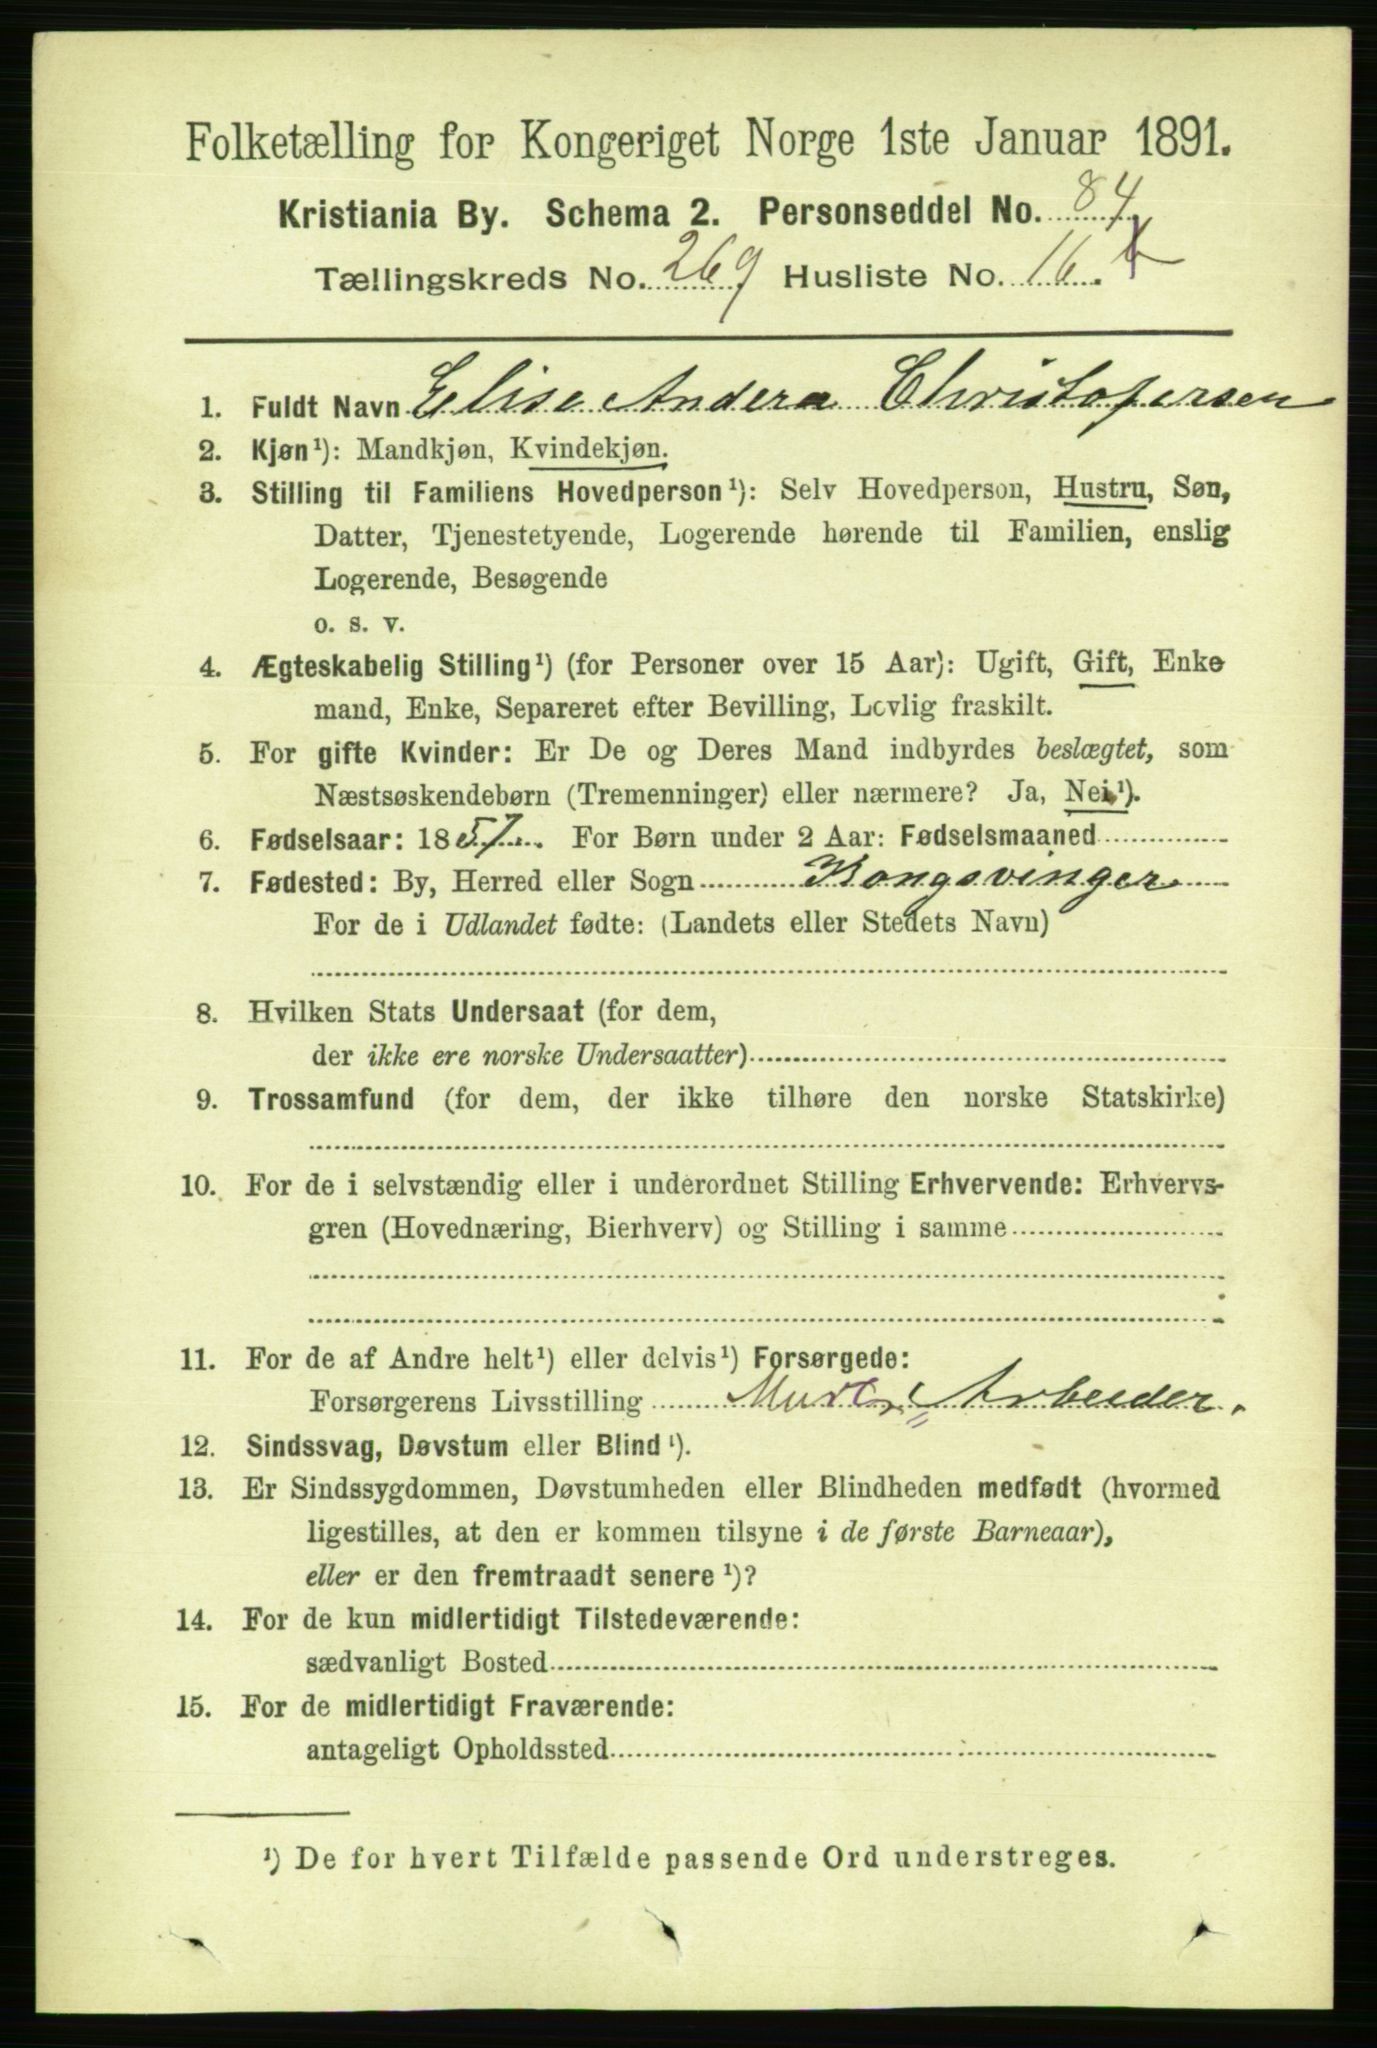 Folketælling for Kongeriget Norge 1ste Januar 1891.
Kristiania By. Schema 2. Personseddel No. 84
Tællingskreds No. 269 Husliste No. 16.
1. Fuldt Navn Elise Andera Christofersen
2. Kjøn¹): Mandkjøn, Kvindekjøn.
3. Stilling til Familiens Hovedperson¹): Selv Hovedperson, Hustru, Søn,
Datter, Tjenestetyende, Logerende hørende til Familien, enslig
Logerende, Besøgende
o. s. v.
4. Ægteskabelig Stilling¹) (for Personer over 15 Aar): Ugift, Gift, Enke
mand, Enke, Separeret efter Bevilling, Lovlig fraskilt.
5. For gifte Kvinder: Er De og Deres Mand indbyrdes beslægtet, som
Næstsøskendebørn (Tremenninger) eller nærmere? Ja, Nei¹).
6. Fødselsaar: 1857. For Børn under 2 Aar: Fødselsmaaned
7. Fødested: By, Herred eller Sogn Kongsvinger
For de i Udlandet fødte: (Landets eller Stedets Navn)
8. Hvilken Stats Undersaat (for dem,
der ikke ere norske Undersaatter)
9. Trossamfund (for dem, der ikke tilhøre den norske Statskirke)
10. For de i selvstændig eller i underordnet Stilling Erhvervende: Erhvervs-
gren (Hovednæring, Bierhverv) og Stilling i samme
11. For de af Andre helt¹) eller delvis¹) Forsørgede:
Forsørgerens Livsstilling Murer Arbeider.
12. Sindssvag, Døvstum eller Blind¹).
13. Er Sindssygdommen, Døvstumheden eller Blindheden medfødt (hvormed
ligestilles, at den er kommen tilsyne i de første Barneaar),
eller er den fremtraadt senere¹)?
14. For de kun midlertidigt Tilstedeværende:
sædvanligt Bosted
15. For de midlertidigt Fraværende:
antageligt Opholdssted
¹) De for hvert Tilfælde passende Ord understreges.